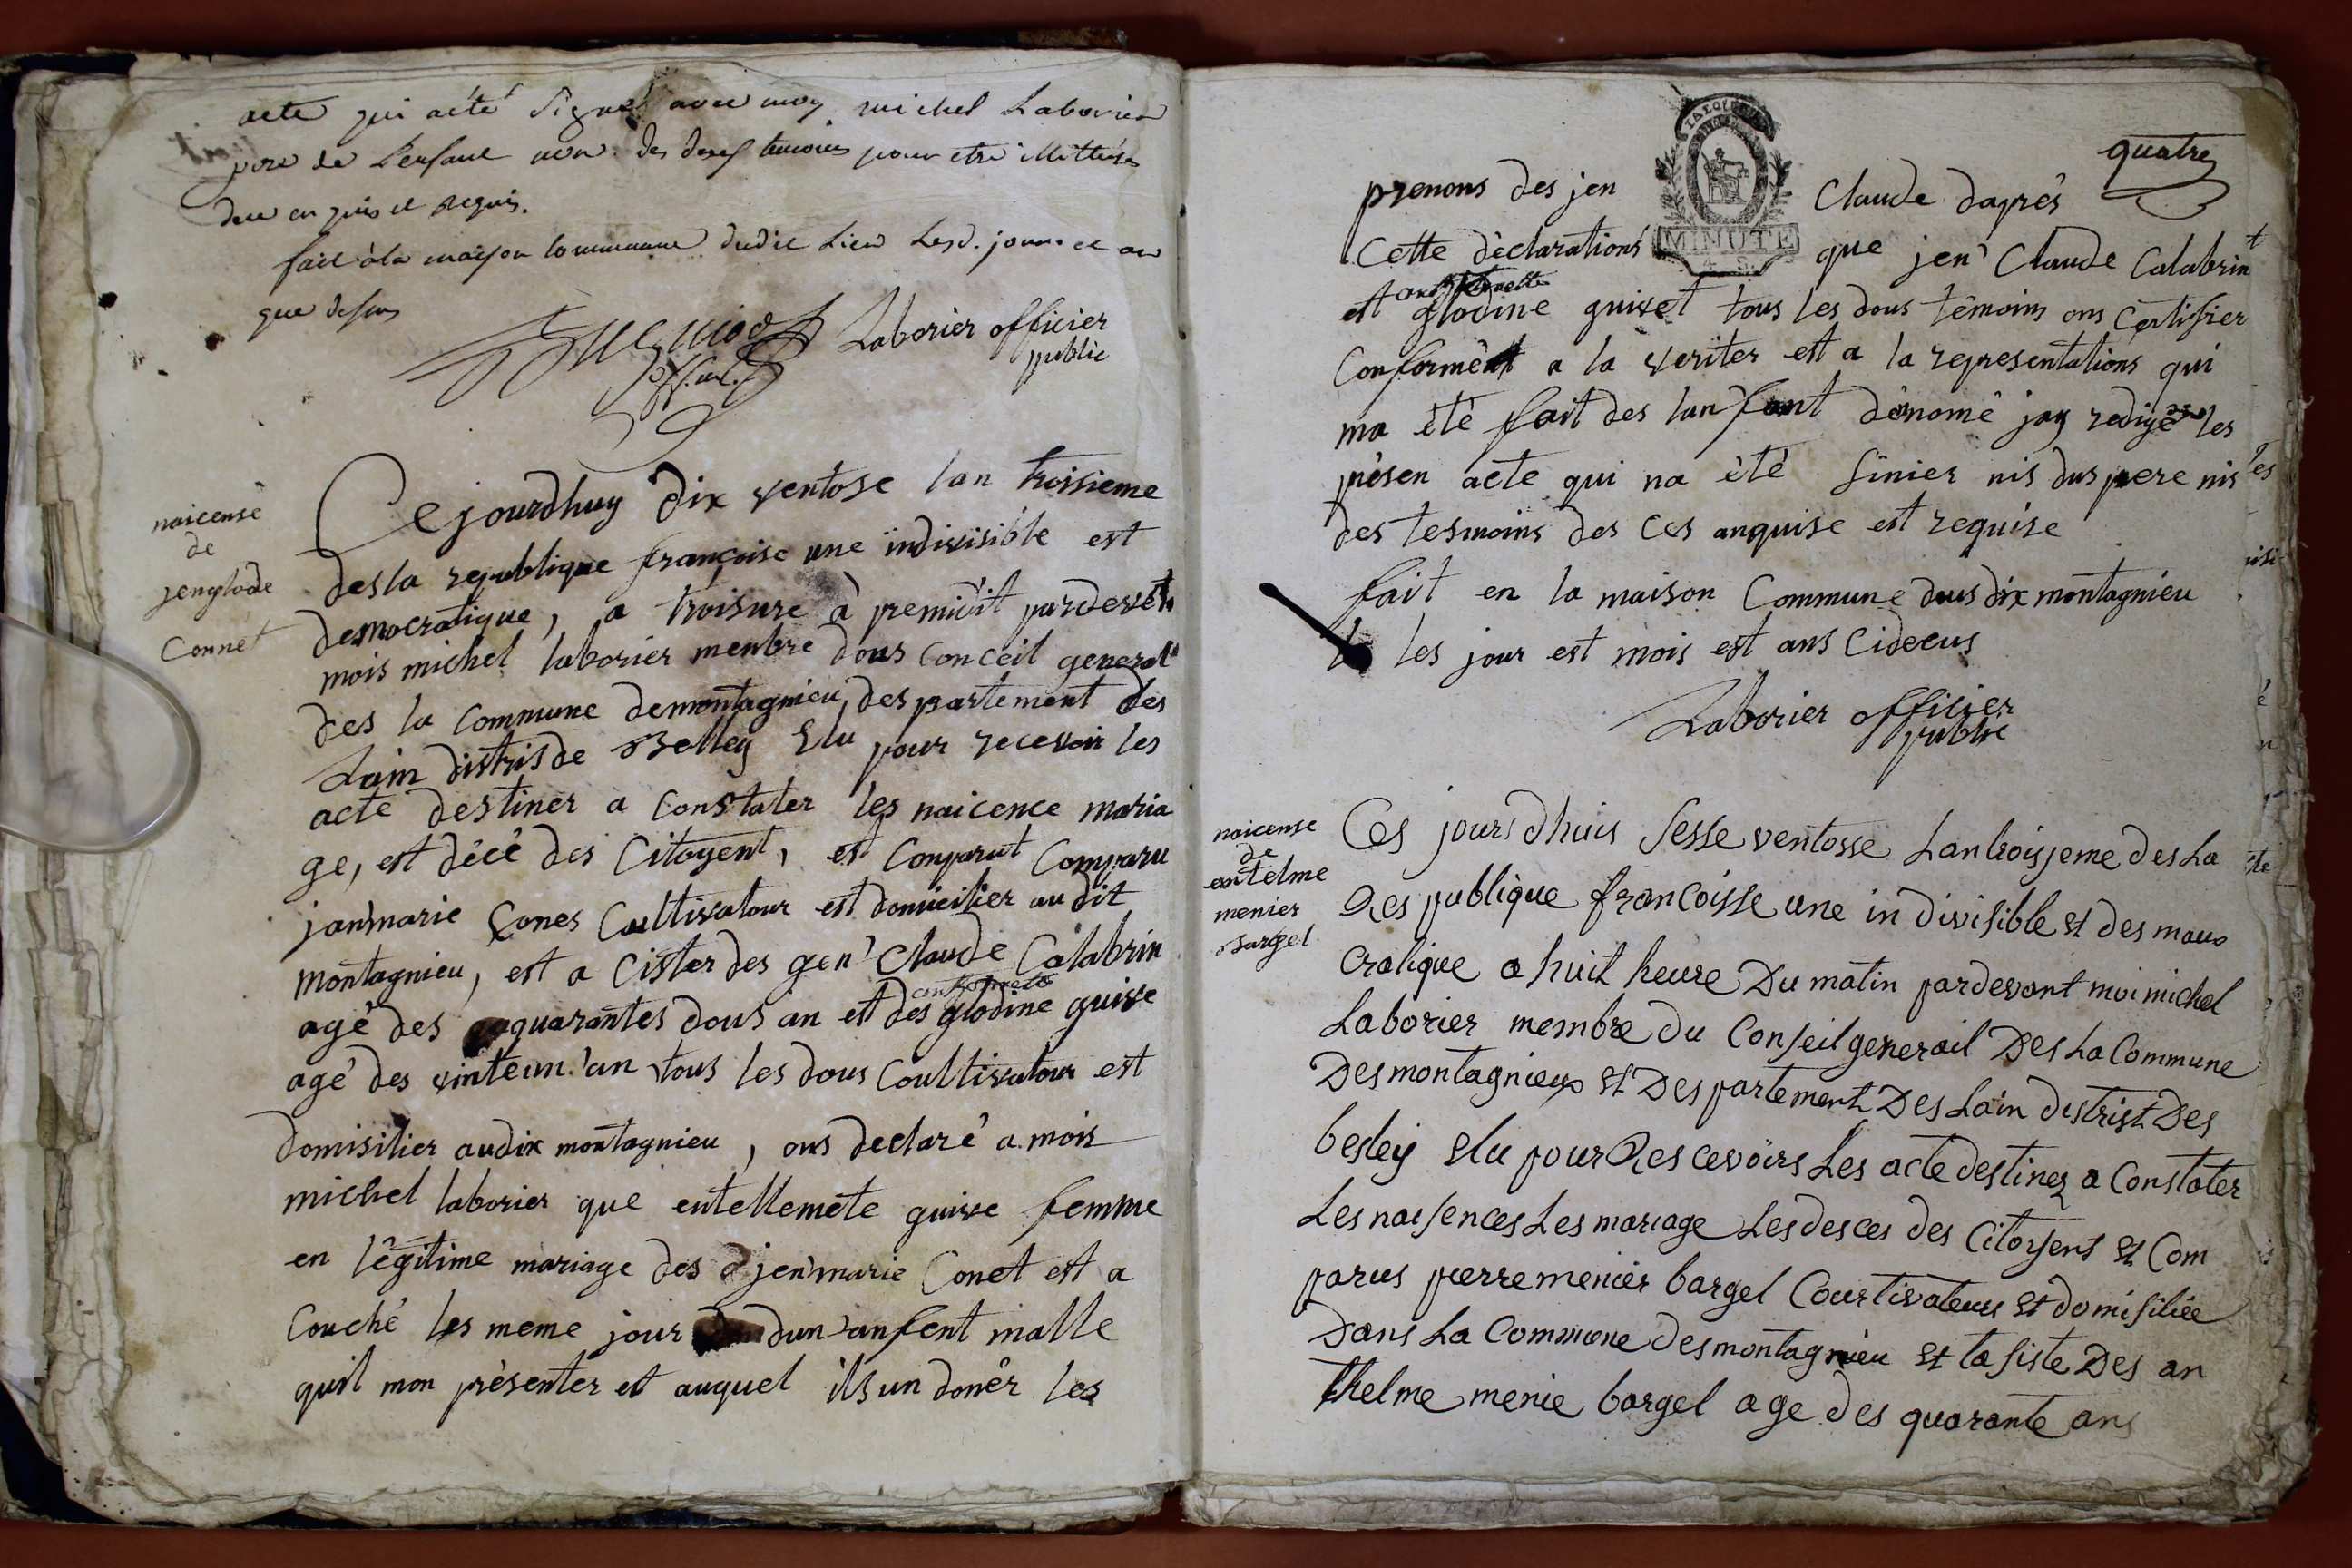 acte qui a été Signé avec moy michel Laborier
père de L'enfant non des deux temoins pour etre illitterés
de ce enquis et requis.
fait à la maison commune dudit Lieu Lesd. jour et an
que dessus
Laborier officier
public
naicense
de
jenglode
Connet
Cejourdhuy dix ventose lan troisieme
desla republique françoise une indivisible est
desmocratique, a troisure à premidit pardevent
mois michel laborier menbre dous conceil general
des la commune demontagnieu, des partement des
Lain distris de Belley Elu pour recevoir les
acte destiner a constater les naicence maria
ge, est décé des Citoyent, est Conparut Comparu
janmarie Cones Coultivatour est domicilier au dit
montagnieu, est a Cister des gen Claude Calabrin
agé des quarantes dous an et des glodine guive
agé des vinteun an tous les dous Coultivatour est
domisilier audix montagnieu, ons declaré a mois
michel laborier que entellemete guive femme
en légitime mariage des jenmarie Conet est a
Couché les meme jour dun anfent malle
quil mon présenter et auquel ils un donér les
quatre
prenons des jen Claude daprés
MINUTE
4 S.
Cette déclarations que jen Claude Calabrint
et glodine guivet tous les dous témoins ons Certifier
Conformét a la veriter est a la representations qui
ma été fait des lanfant dénomé jay redigé les
présen acte qui na été Sinier nis dus pere nis les
des tesmoins des Ces anquise est requise
fait en la maison Commune dous dix montagnieu
les jour est mois est ans Cidecus
Laborier officier
public
naicense
de
entelme
menier
Bargel
Ces jours dhuis Sesse ventosse Lan troisjeme des La
Res publique francoisse une in divisible et des mau
cratique a huit heure Du matin pardevant moi michel
Laborier membre du Conseil generail Des La Commune
Des montagnieux et Des partement Des Lain distrist Des
besley elu pour Res cevoirs Les acte destinez a Constater
Les naisences Les mariage Les desces des Citoyens et Com
parus pierre menier bargel Courtivateur et domisiliée
Dans La Commune des montagnieu et ta siste Des an
thelme menie bargel age des quarante ans